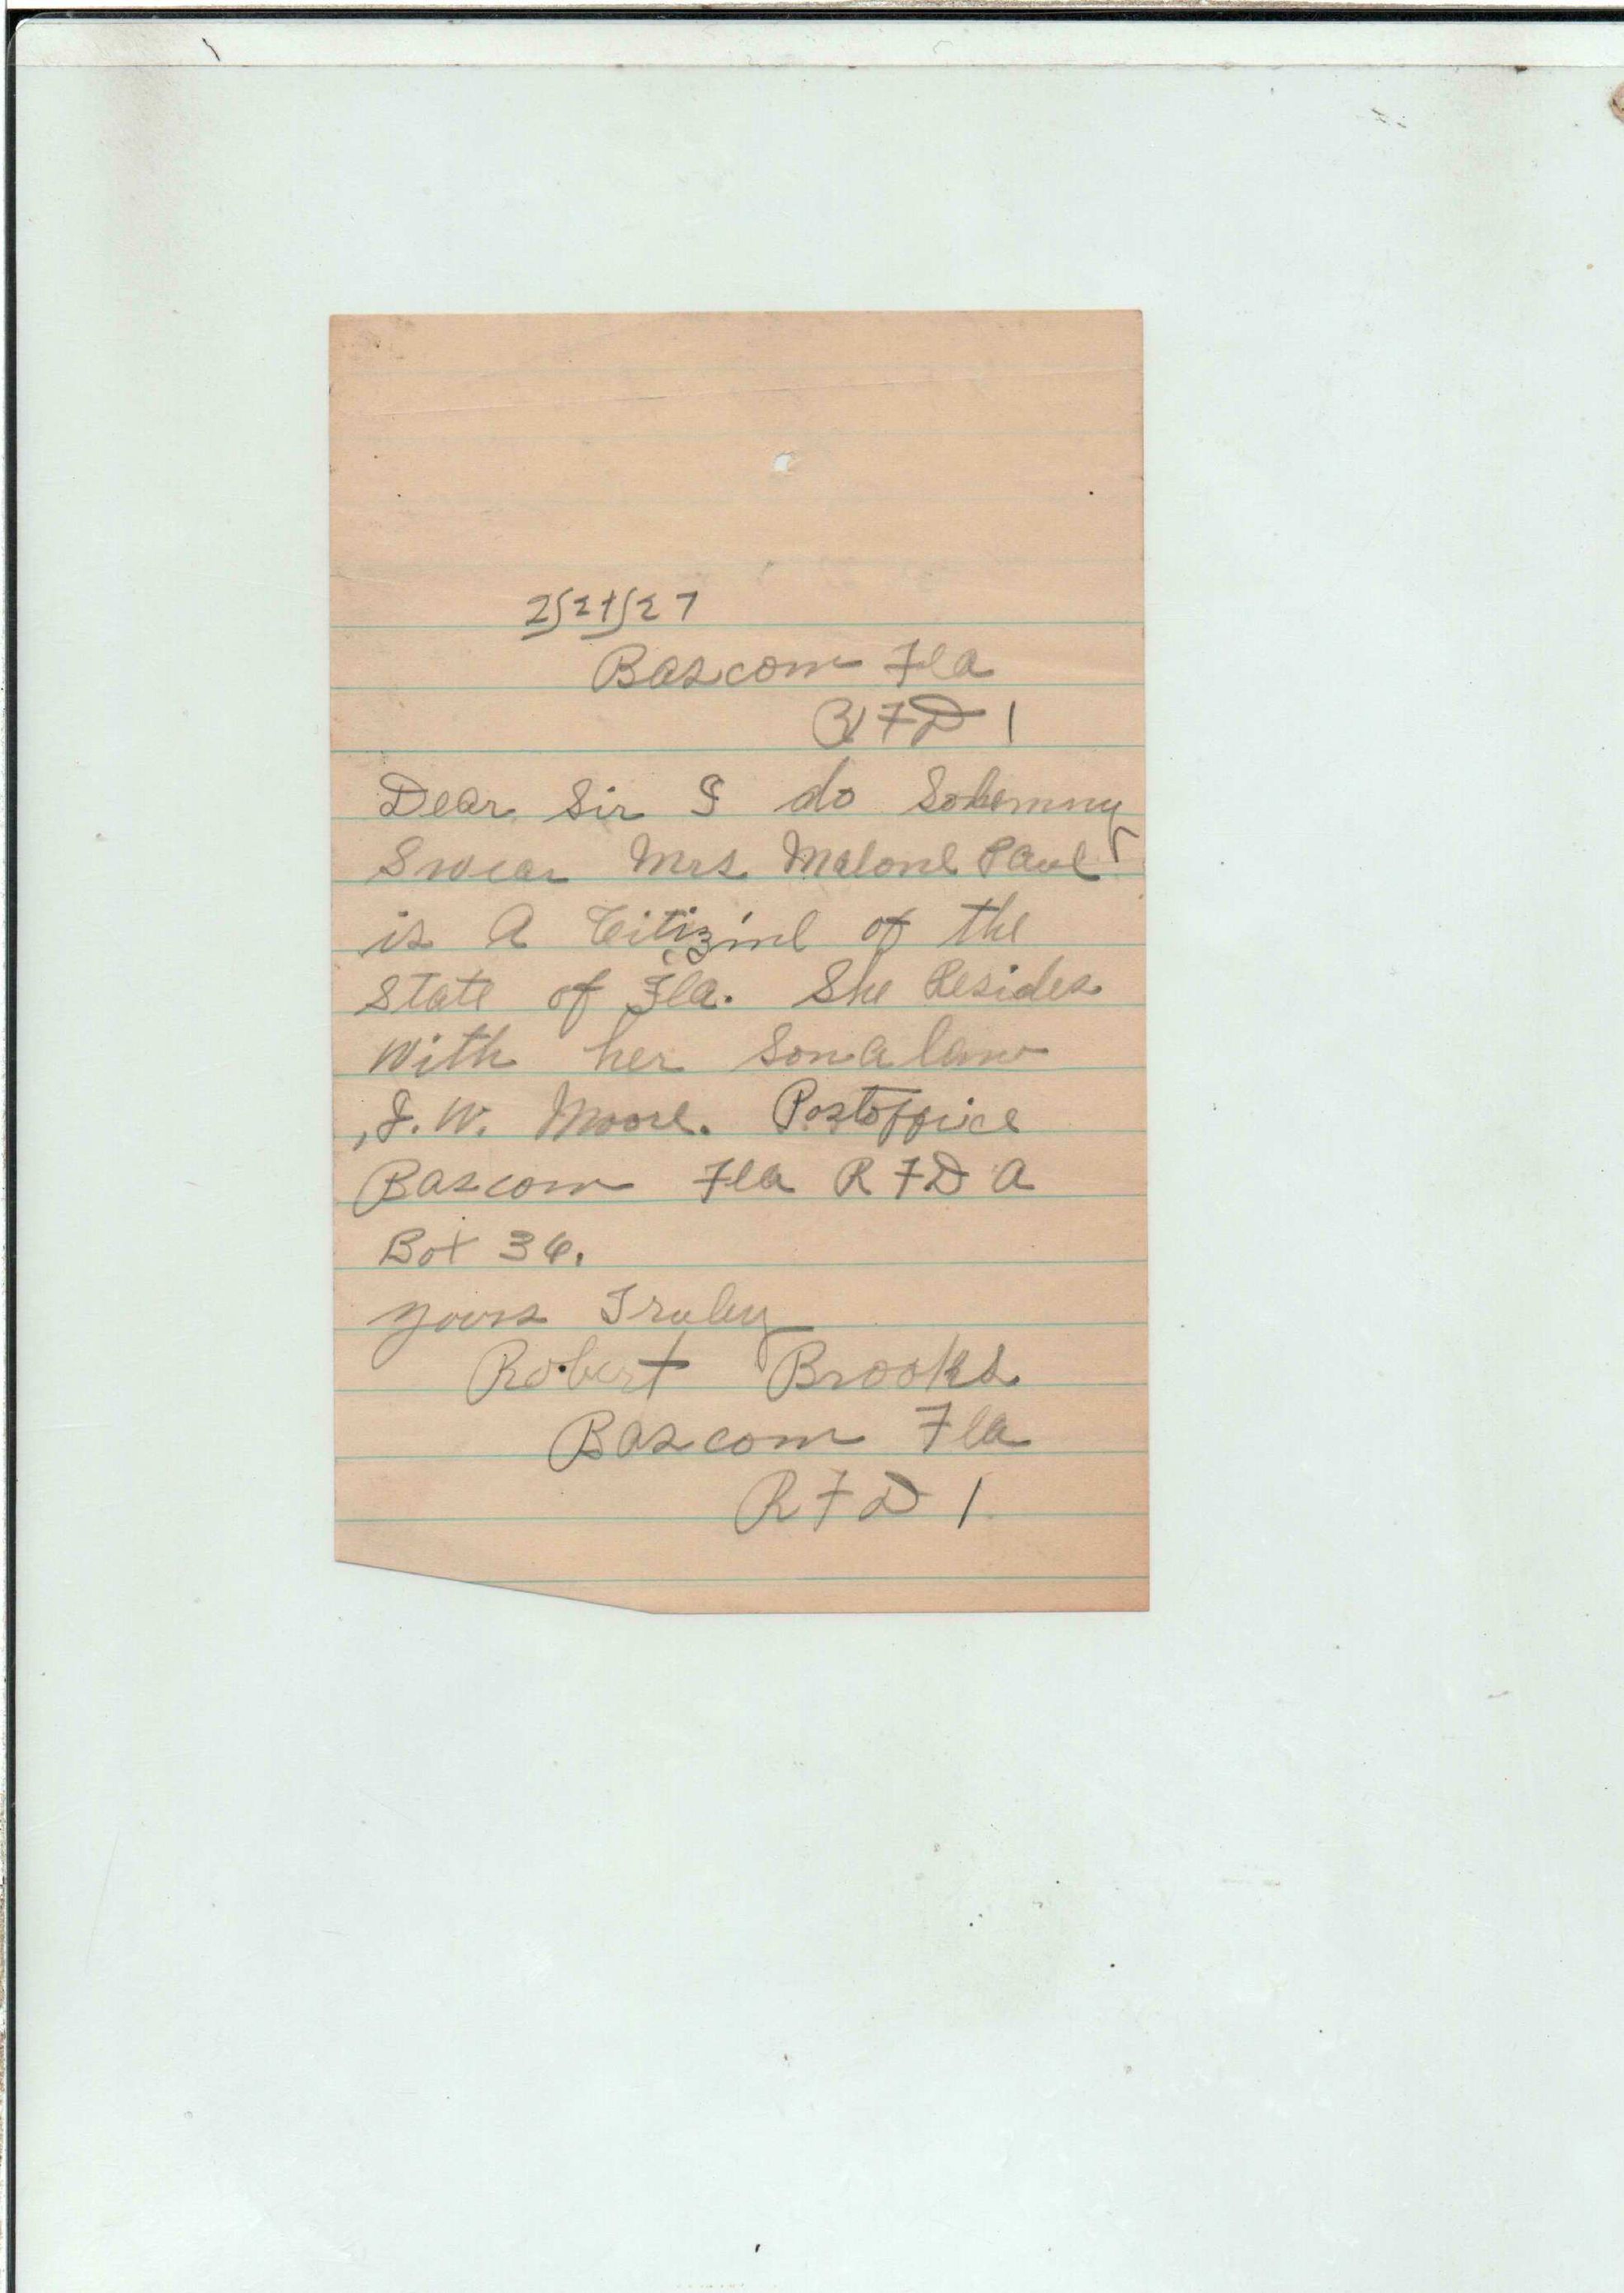 2/21/27
Bascom Fla
R F D 1
Dear Sir I do Solemny
Swear Mrs Malone Paul
is A Citizine of the
State of Fla. She Resides
With her Son a law
J. W. Moore. Postoffice
Bascom Fla R F D A
Box 36.
yours Truley
Robert Brooks
Bascom Fla
R F D 1